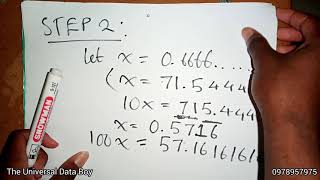 STEP 2:
let x = 0.6666.....
(x = 71.5444
10x = 715.444
x = 0.5716
100x = 57.16161616
SNOWMAN
The Universal Data Boy
0978957975